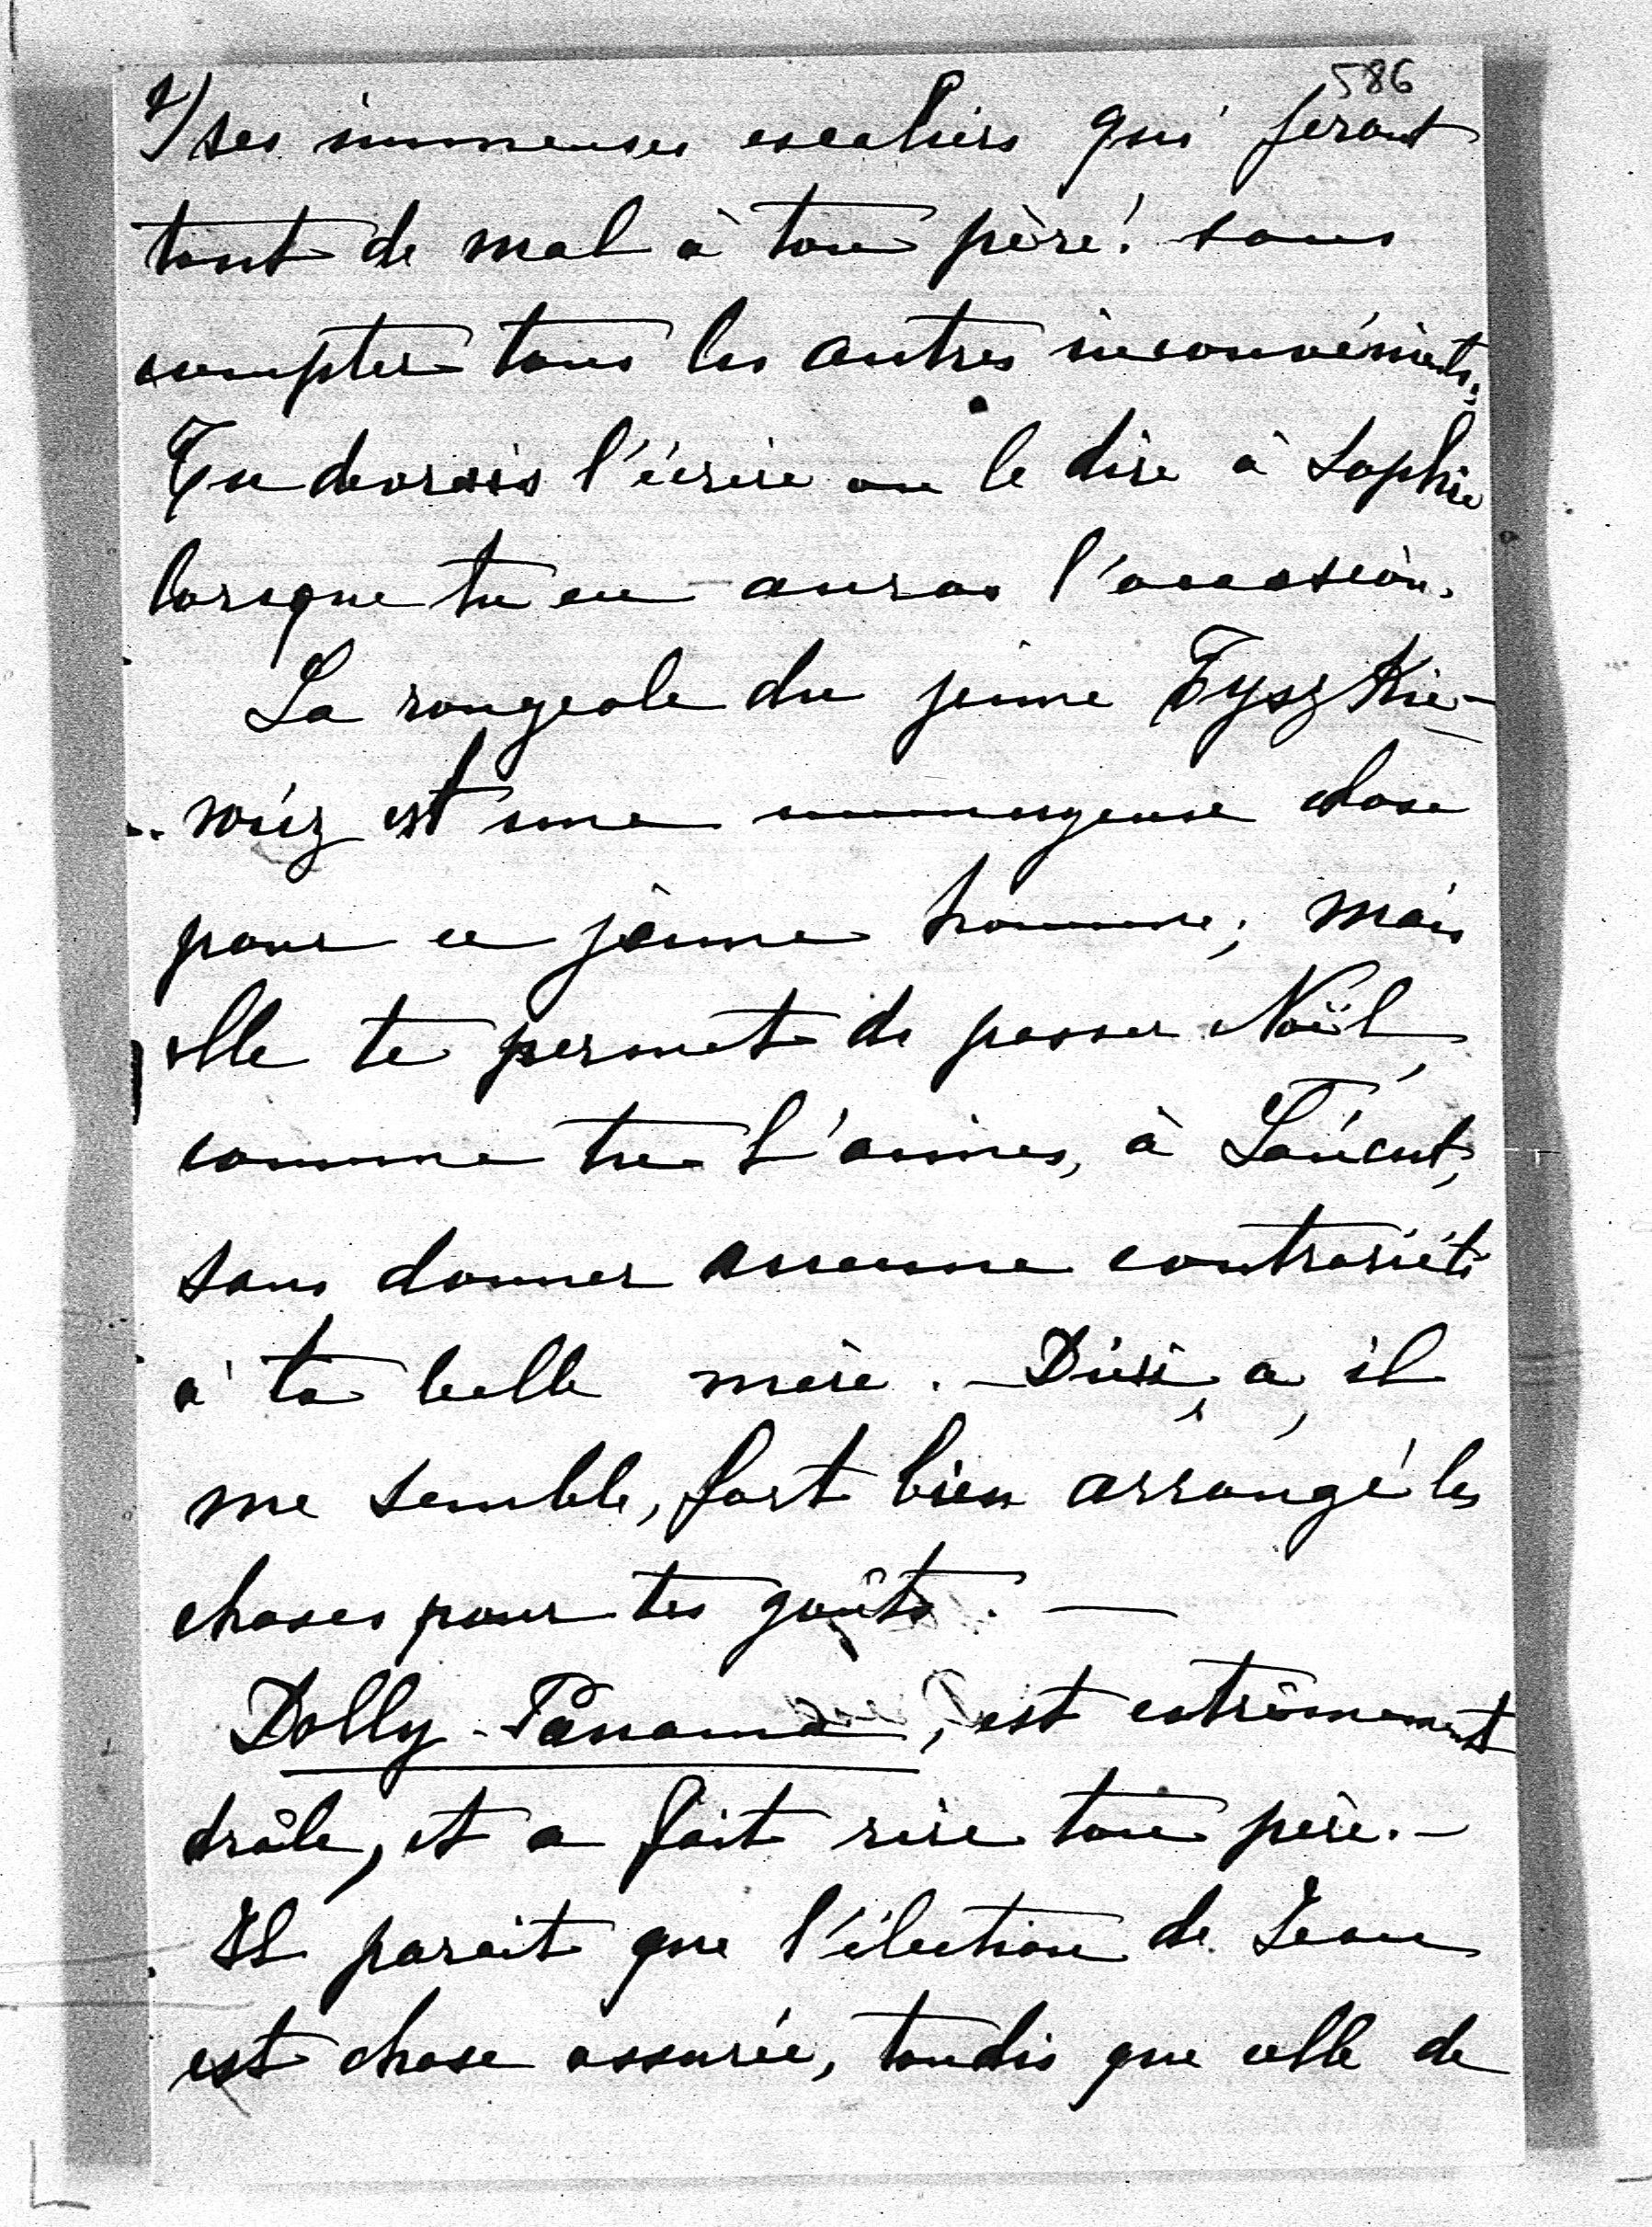 586
2/ ses immenses escaliers qui feront
tant de mal à ton père! sans
compter tous les autres inconvénients.
Tu devrais l'écrire ou le dire à Sophie
lorsque tu en auras l'occasion.
La rougeole du jeune Tyszkie-
wicz est une ennuyeuse chose
pour ce jeune homme; mais
elle te permet de passer Noël,
comme tu l'aimes, à Łańcut,
sans donner aucune contrariété
à ta belle mère. - a, il
me semble, fort bien arrangé les
choses pour tes goûts. —
Dolly-Panama, est extrêmement
drôle, et a fait rire ton père. -
Il parait que l'élection de Jean
est chose assurée, tandis que celle de